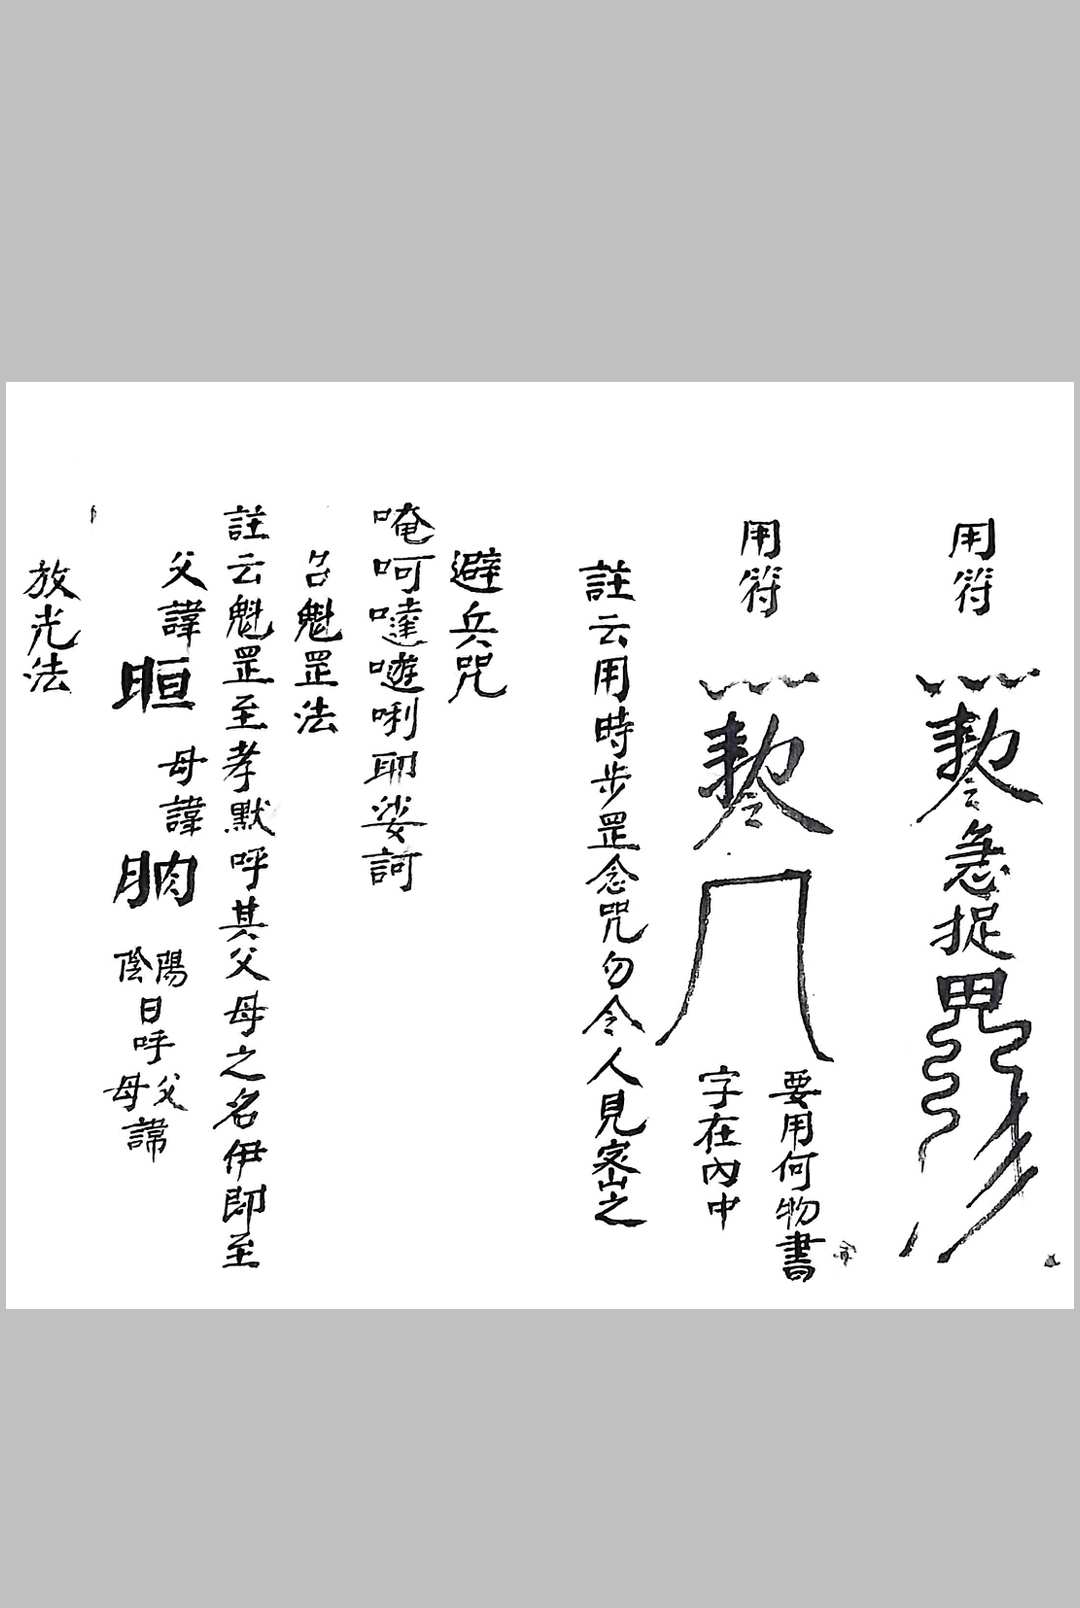 用符
急捉
用符
要用何物書
字在內中
註云用時步罡念咒勿令人見密之
避兵咒
唵呵噠𠵇唎耶娑訶
召魁罡法
註云魁罡至孝默呼其父母之名伊即至
父諱 𣆀 母諱 朒 陽陰日呼父母諱
放光法